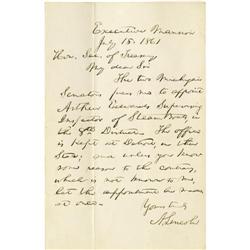 Executive Mansion
July 18, 1861
Hon. Sec. of Treasury
My dear Sir
The two Michigan
Senators press me to appoint
Arthur Edwards Supervising
Inspector of Steam Boats in
the 8th District. The office
is kept at Detroit, in their
State; and unless you know
some reason to the contrary,
which is not known to me,
let the appointment be made
at once.
Yours truly
A. Lincoln